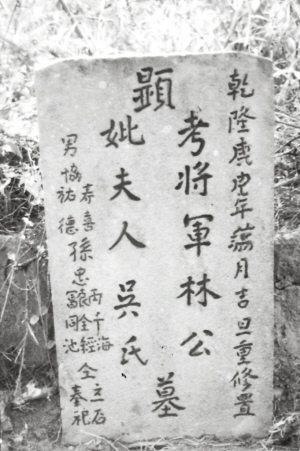 乾隆庚申年蒲月吉旦重修置
顯
考將軍林公
妣夫人吳氏
墓
男 協祐德 壽喜
孫 忠 丙千海 全經 同池
仝立石奉祀